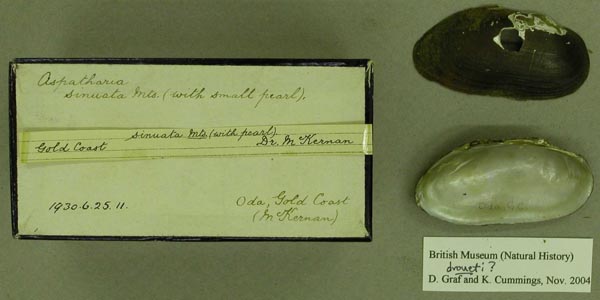 Aspatharia
sinuata Mts. (with small pearl).
sinuata Mts. (with pearl)
Gold Coast
Dr. McKernan
1930.6.25.11.
Oda, Gold Coast
(McKernan)
Oda, G.C.
British Museum (Natural History)
droueti?
D. Graf and K. Cummings, Nov. 2004